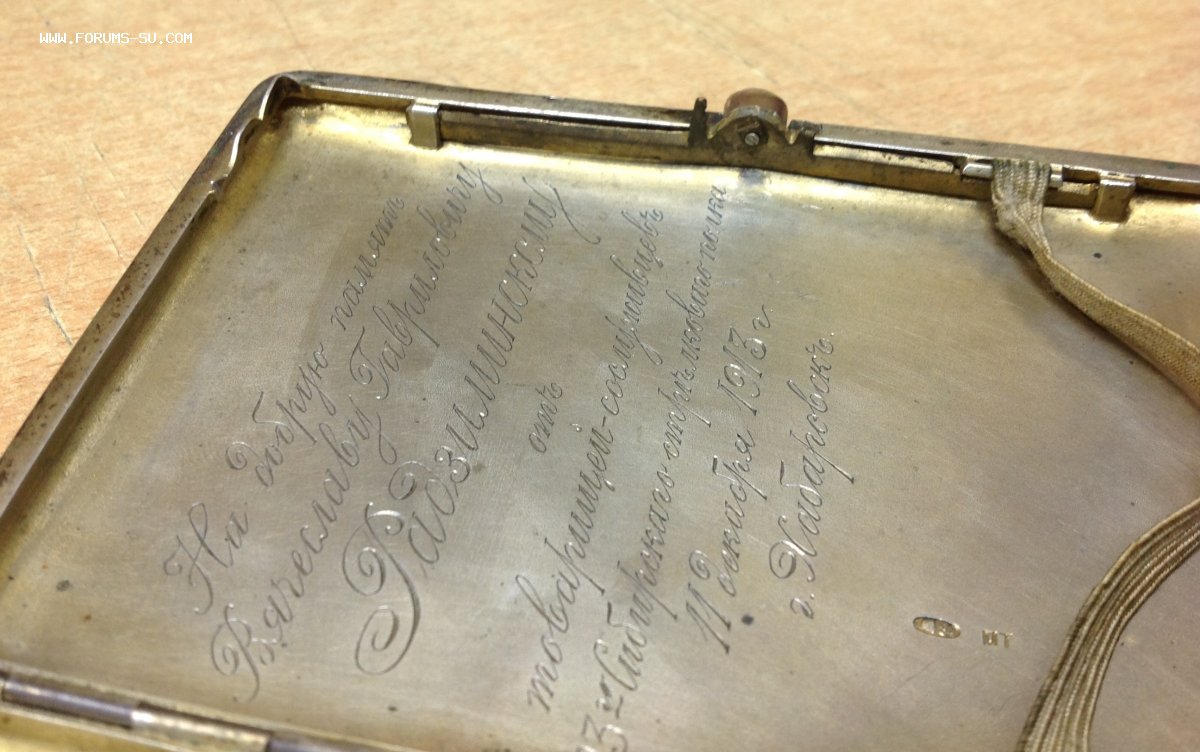 WWW.FORUMS-SU.COM
На добрую память
Вячеславу Гавриловичу
Радзиминскому
отъ
товарищей-сослуживцевъ
23го Сибирскаго стрѣлковаго полка
11 Октября 1913 г.
г. Хабаровскъ.